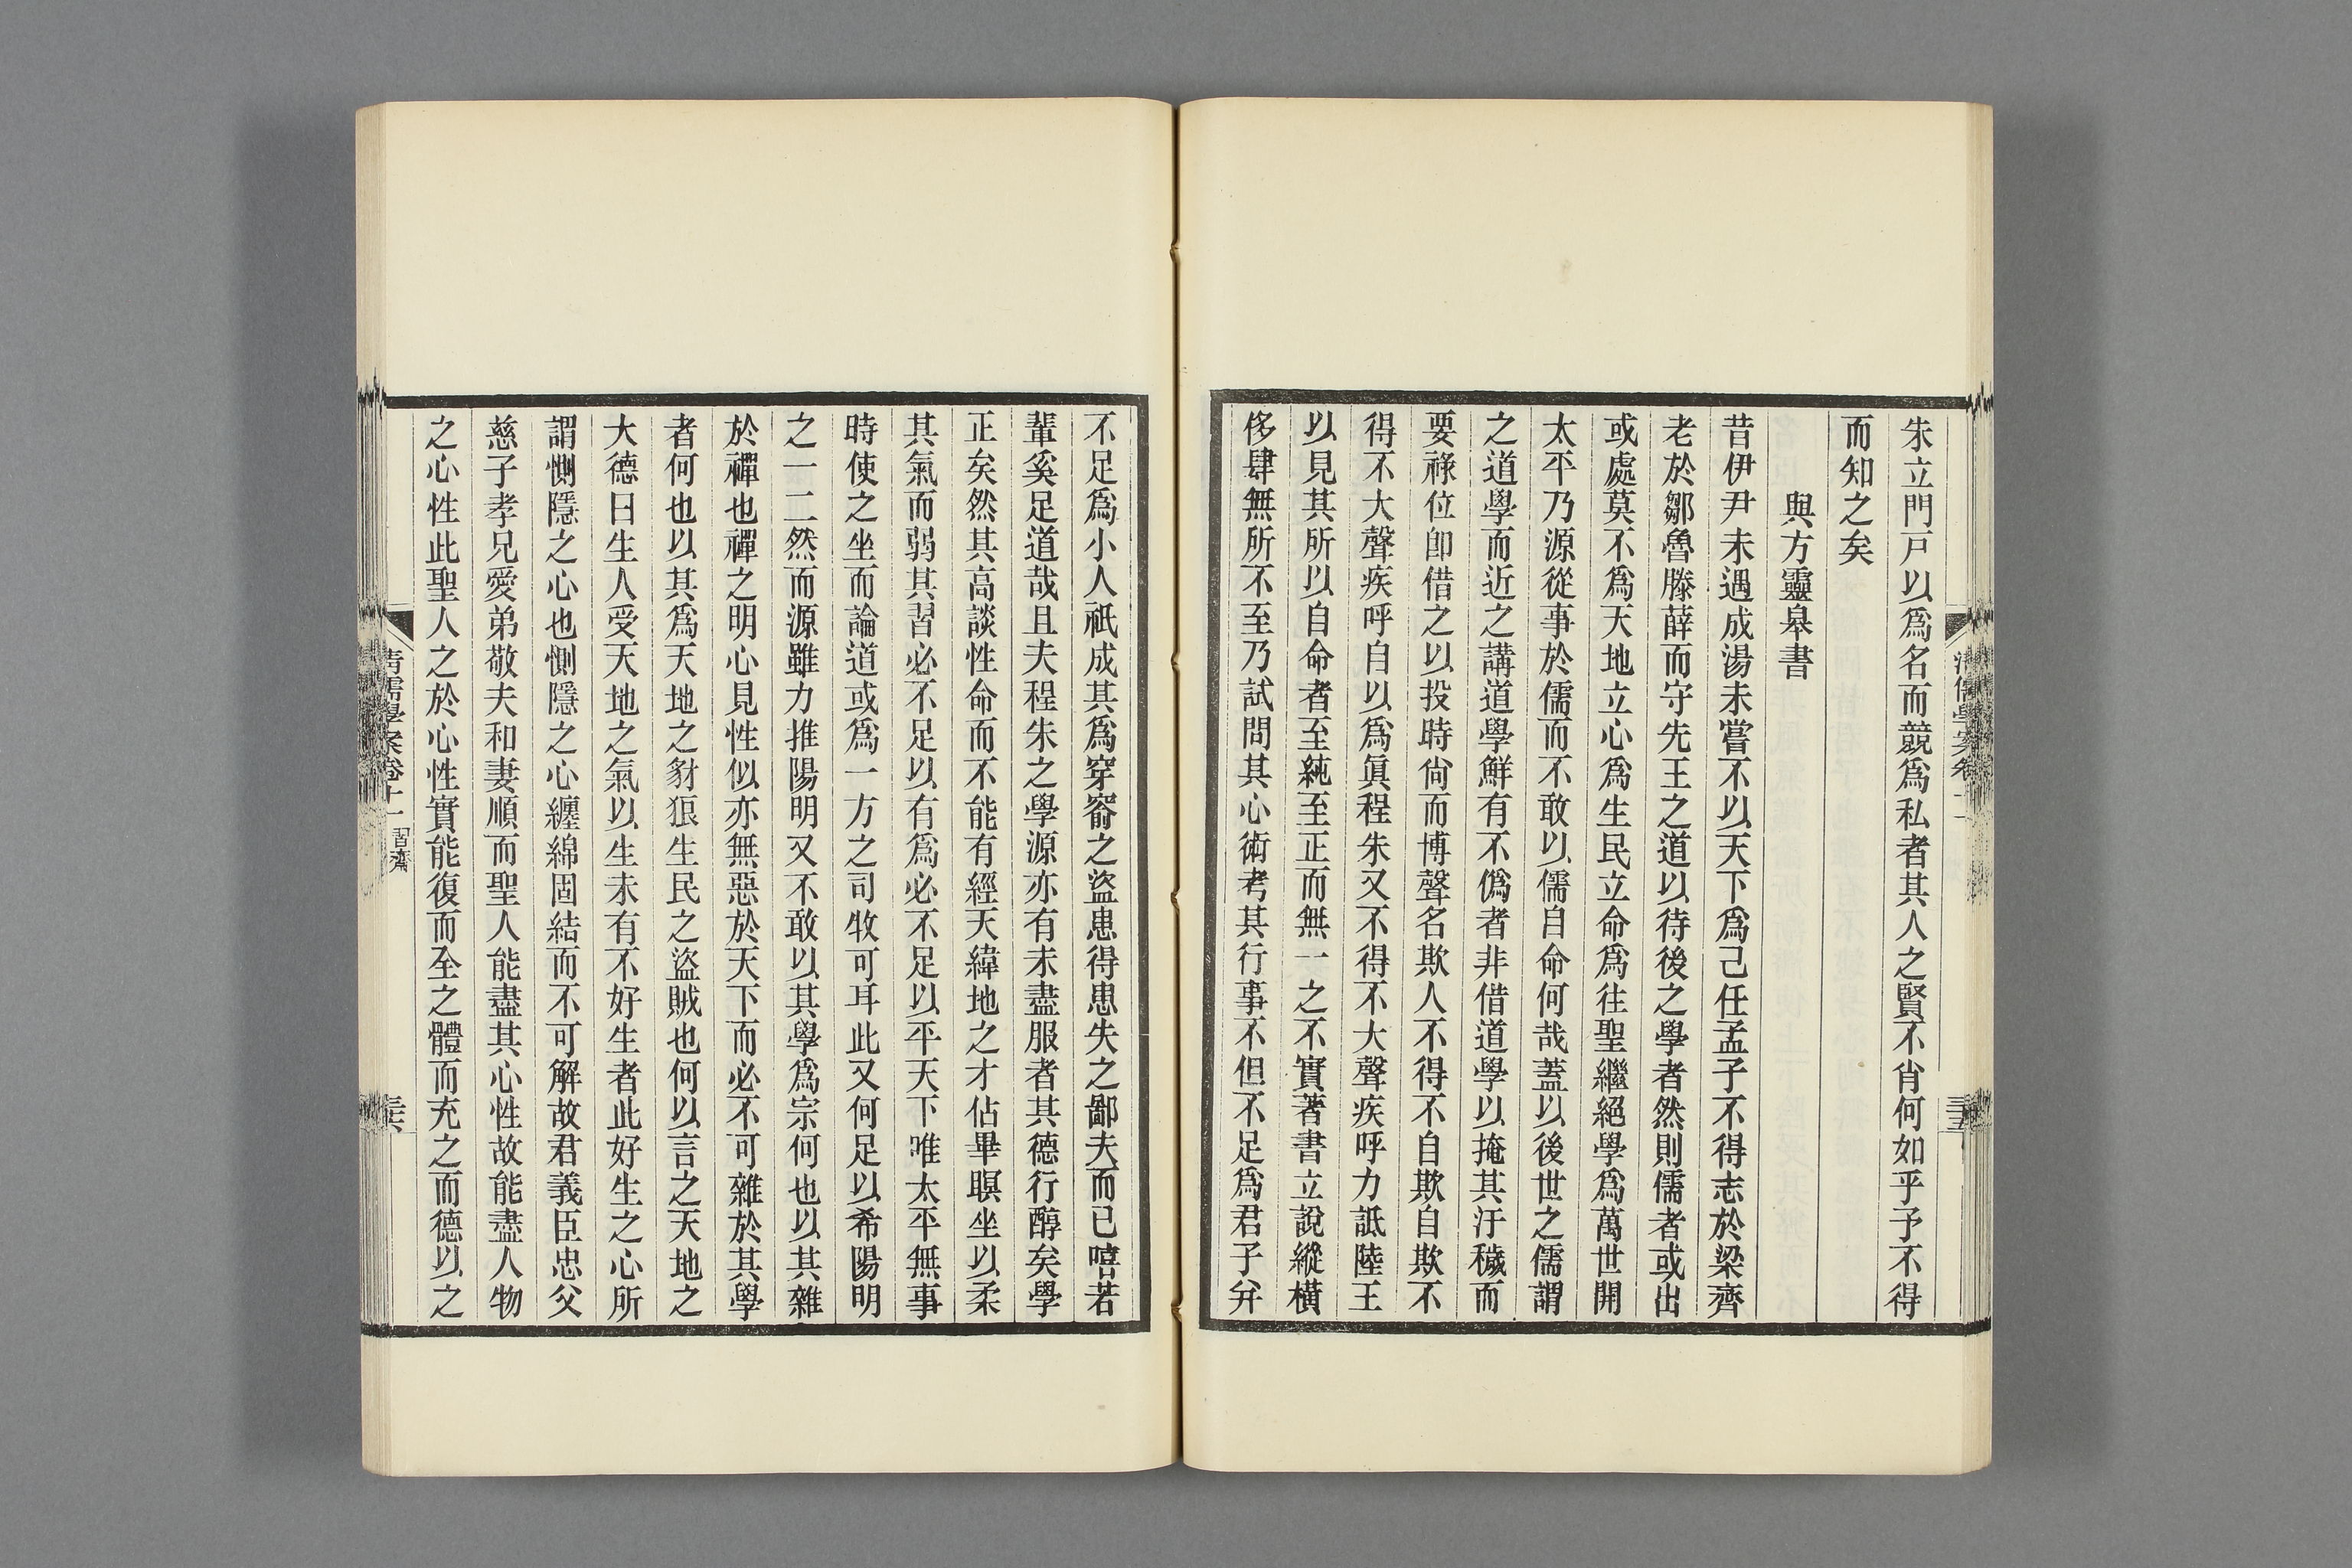 朱立門戸以爲名而競爲私者其人之賢不肖何如乎予不得
而知之矣
與方靈皋書
昔伊尹未遇成湯未嘗不以天下爲己任孟子不得志於梁齊
老於鄒魯滕薛而守先王之道以待後之學者然則儒者或出
或處莫不爲天地立心爲生民立命爲往聖繼絕學爲萬世開
太平乃源從事於儒而不敢以儒自命何哉蓋以後世之儒謂
之道學而近之講道學鮮有不僞者非借道學以掩其汙穢而
要祿位卽借之以投時尙而博聲名欺人不得不自欺自欺不
得不大聲疾呼自以爲眞程朱又不得不大聲疾呼力詆陸王
以見其所以自命者至純至正而無一之不實著書立說縱橫
侈肆無所不至乃試問其心術考其行事不但不足爲君子弁
不足爲小人祇成其爲穿窬之盜患得患失之鄙夫而已嘻若
輩奚足道哉且夫程朱之學源亦有未盡服者其德行醇矣學
正矣然其高談性命而不能有經天緯地之才佔畢瞑坐以柔
其氣而弱其習必不足以有爲必不足以平天下唯太平無事
時使之坐而論道或爲一方之司牧可耳此又何足以希陽明
之一二然而源雖力推陽明又不敢以其學爲宗何也以其雜
於禪也禪之明心見性似亦無惡於天下而必不可雜於其學
者何也以其爲天地之豺狼生民之盜賊也何以言之天地之
大德曰生人受天地之氣以生未有不好生者此好生之心所
謂惻隱之心也惻隱之心纏綿固結而不可解故君義臣忠父
慈子孝兄愛弟敬夫和妻順而聖人能盡其心性故能盡人物
之心性此聖人之於心性實能復而全之體而充之而德以之
清儒學案卷十一
習齋
三六